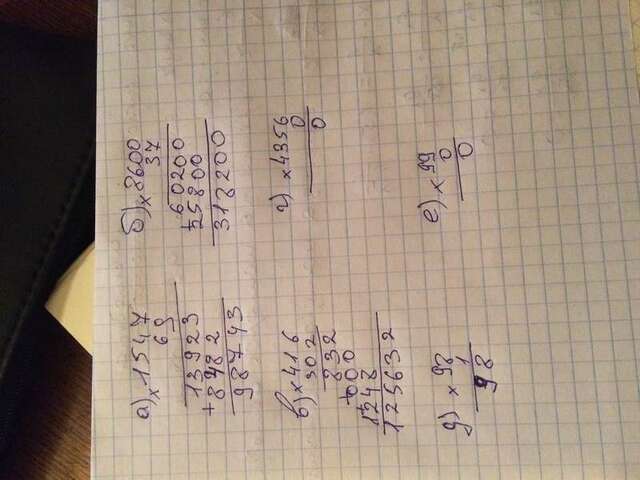 а) × 1547
69
13923
+ 8482
98743
б) × 8600
37
60200
+ 25800
318200
в) × 416
302
832
+ 000
+ 1248
125632
г) × 4356
0
0
д) × 98
1
98
е) × 99
0
0